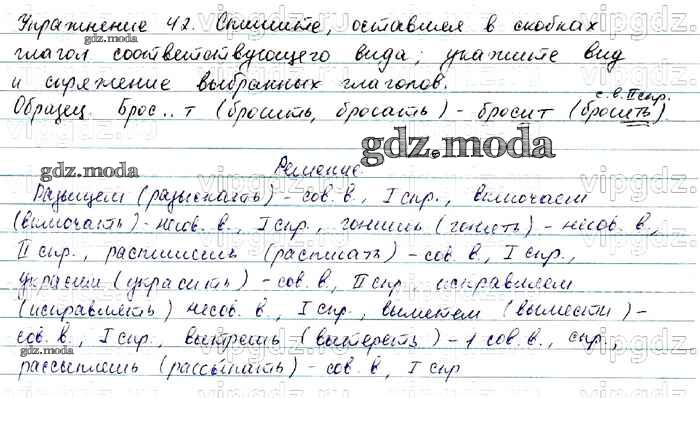 Упражнение 42. Спишите, оставляя в скобках
глагол соответствующего вида; укажите вид
и спряжение выбранных глаголов.
с.в. II спр.
Образец. Брос..т (бросить, бросать) - бросит (бросить)
gdz.moda
gdz.moda
Решение
Разыщем (разыскать) - сов. в., I спр., включаем
(включать) - несов. в., I спр., гонишь (гонять) - несов. в.,
II спр., распишешь (расписать) - сов. в., I спр.,
украсим (украсить) - сов. в., II спр., исправляем
(исправлять) несов. в., I спр., выметем (вымести) -
сов. в., I спр., вытрешь (вытереть) - 1 сов. в., спр.,
gdz.moda
рассыплешь (рассыпать) - сов. в, I спр